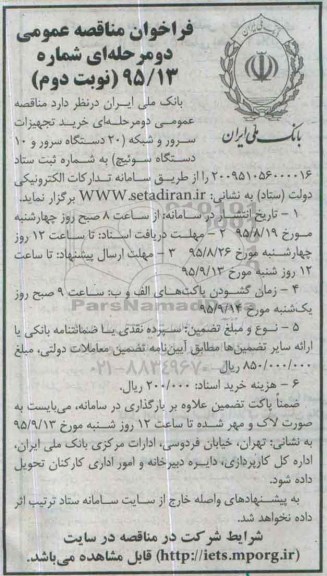 فراخوان مناقصه عمومی
دومرحله‌ای شماره
۹۵/۱۳ (نوبت دوم)
بانک ملی ایران
بانک ملی ایران درنظر دارد مناقصه
عمومی دومرحله‌ای خرید تجهیزات
سرور و شبکه (۲۰ دستگاه سرور و ۱۰
دستگاه سوئیچ) به شماره ثبت ستاد
۲۰۰۹۵۱۰۵۶۰۰۰۰۱۶ را از طریق سامانه تدارکات الکترونیکی
دولت (ستاد) به نشانی: WWW.setadiran.ir برگزار نماید.
۱ – تاریخ انتشار در سامانه: از ساعت ۸ صبح روز چهارشنبه
مورخ ۹۵/۸/۱۹ ۲ – مهلت دریافت اسناد: تا ساعت ۱۲ روز
چهارشنبه مورخ ۹۵/۸/۲۶ ۳ – مهلت ارسال پیشنهاد: تا ساعت
۱۲ روز شنبه مورخ ۹۵/۹/۱۳
۴ – زمان گشودن پاکت‌های الف و ب: ساعت ۹ صبح روز
یک‌شنبه مورخ ۹۵/۹/۱۴
۵ – نوع و مبلغ تضمین: سپرده نقدی یا ضمانتنامه بانکی یا
ارائه سایر تضمین‌ها مطابق آیین‌نامه تضمین معاملات دولتی، مبلغ
۸۵۰/۰۰۰/۰۰۰ ریال
۶ – هزینه خرید اسناد: ۲۰۰/۰۰۰ ریال.
ضمناً پاکت تضمین علاوه بر بارگذاری در سامانه، می‌بایست به
صورت لاک و مهر شده تا ساعت ۱۲ روز شنبه مورخ ۹۵/۹/۱۳
به نشانی: تهران، خیابان فردوسی، ادارات مرکزی بانک ملی ایران،
اداره کل کارپردازی، دایره دبیرخانه و امور اداری کارکنان تحویل
داده شود.
به پیشنهادهای واصله خارج از سایت سامانه ستاد ترتیب اثر
داده نخواهد شد.
شرایط شرکت در مناقصه در سایت
(http://iets.mporg.ir) قابل مشاهده می‌باشد.
ParsNamadData
۰۲۱-۸۸۳۴۹۶۷۰